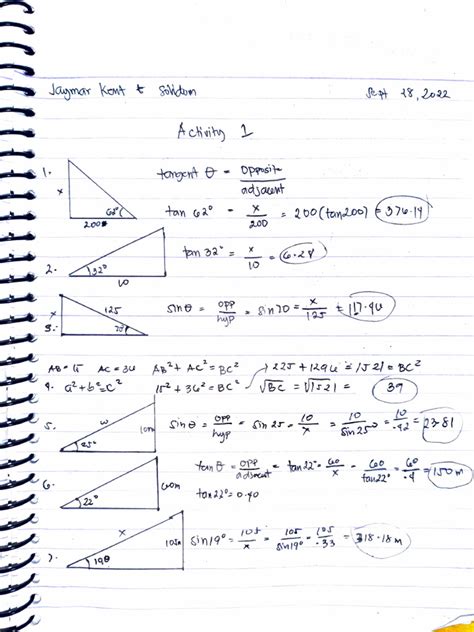 Jaymar Kent E Solidum Sept 28, 2022
Activity 1
1. x 62° 200 tangent θ = opposite / adjacent
tan 62° = x/200 = 200(tan200) = 376.14
2. 32° 10 tan 32° = x/10 = 6.24
3. x 125 70° sinθ = opp/hyp = sin70 = x/125 = 117.46
AB = 15 AC = 36 AB² + AC² = BC² → 225 + 1296 = 1521 = BC²
4. a² + b² = c² 15² + 36² = BC² √BC = √1521 = 39
5. w 25° 10m sinθ = opp/hyp = sin 25 = 10/x = 10/sin25 = 10/.42 = 23.81
6. 22° 60m tanθ = opp/adjacent = tan22° = 60/x = 60/tan22° = 60/.4 = 150m
tan22° = 0.40
7. x 19θ 105m sin19° = 105/x = 105/sin19° = 105/.33 = 318.18m